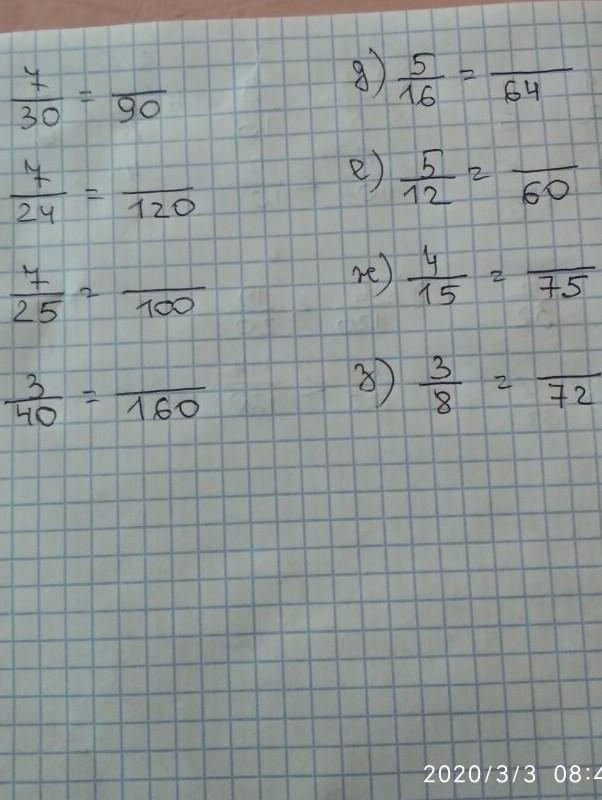 7/30 = /90
7/24 = /120
7/25 = /100
3/40 = /160
д) 5/16 = /64
е) 5/12 = /60
ж) 4/15 = /75
з) 3/8 = /72
2020/3/3 08:4